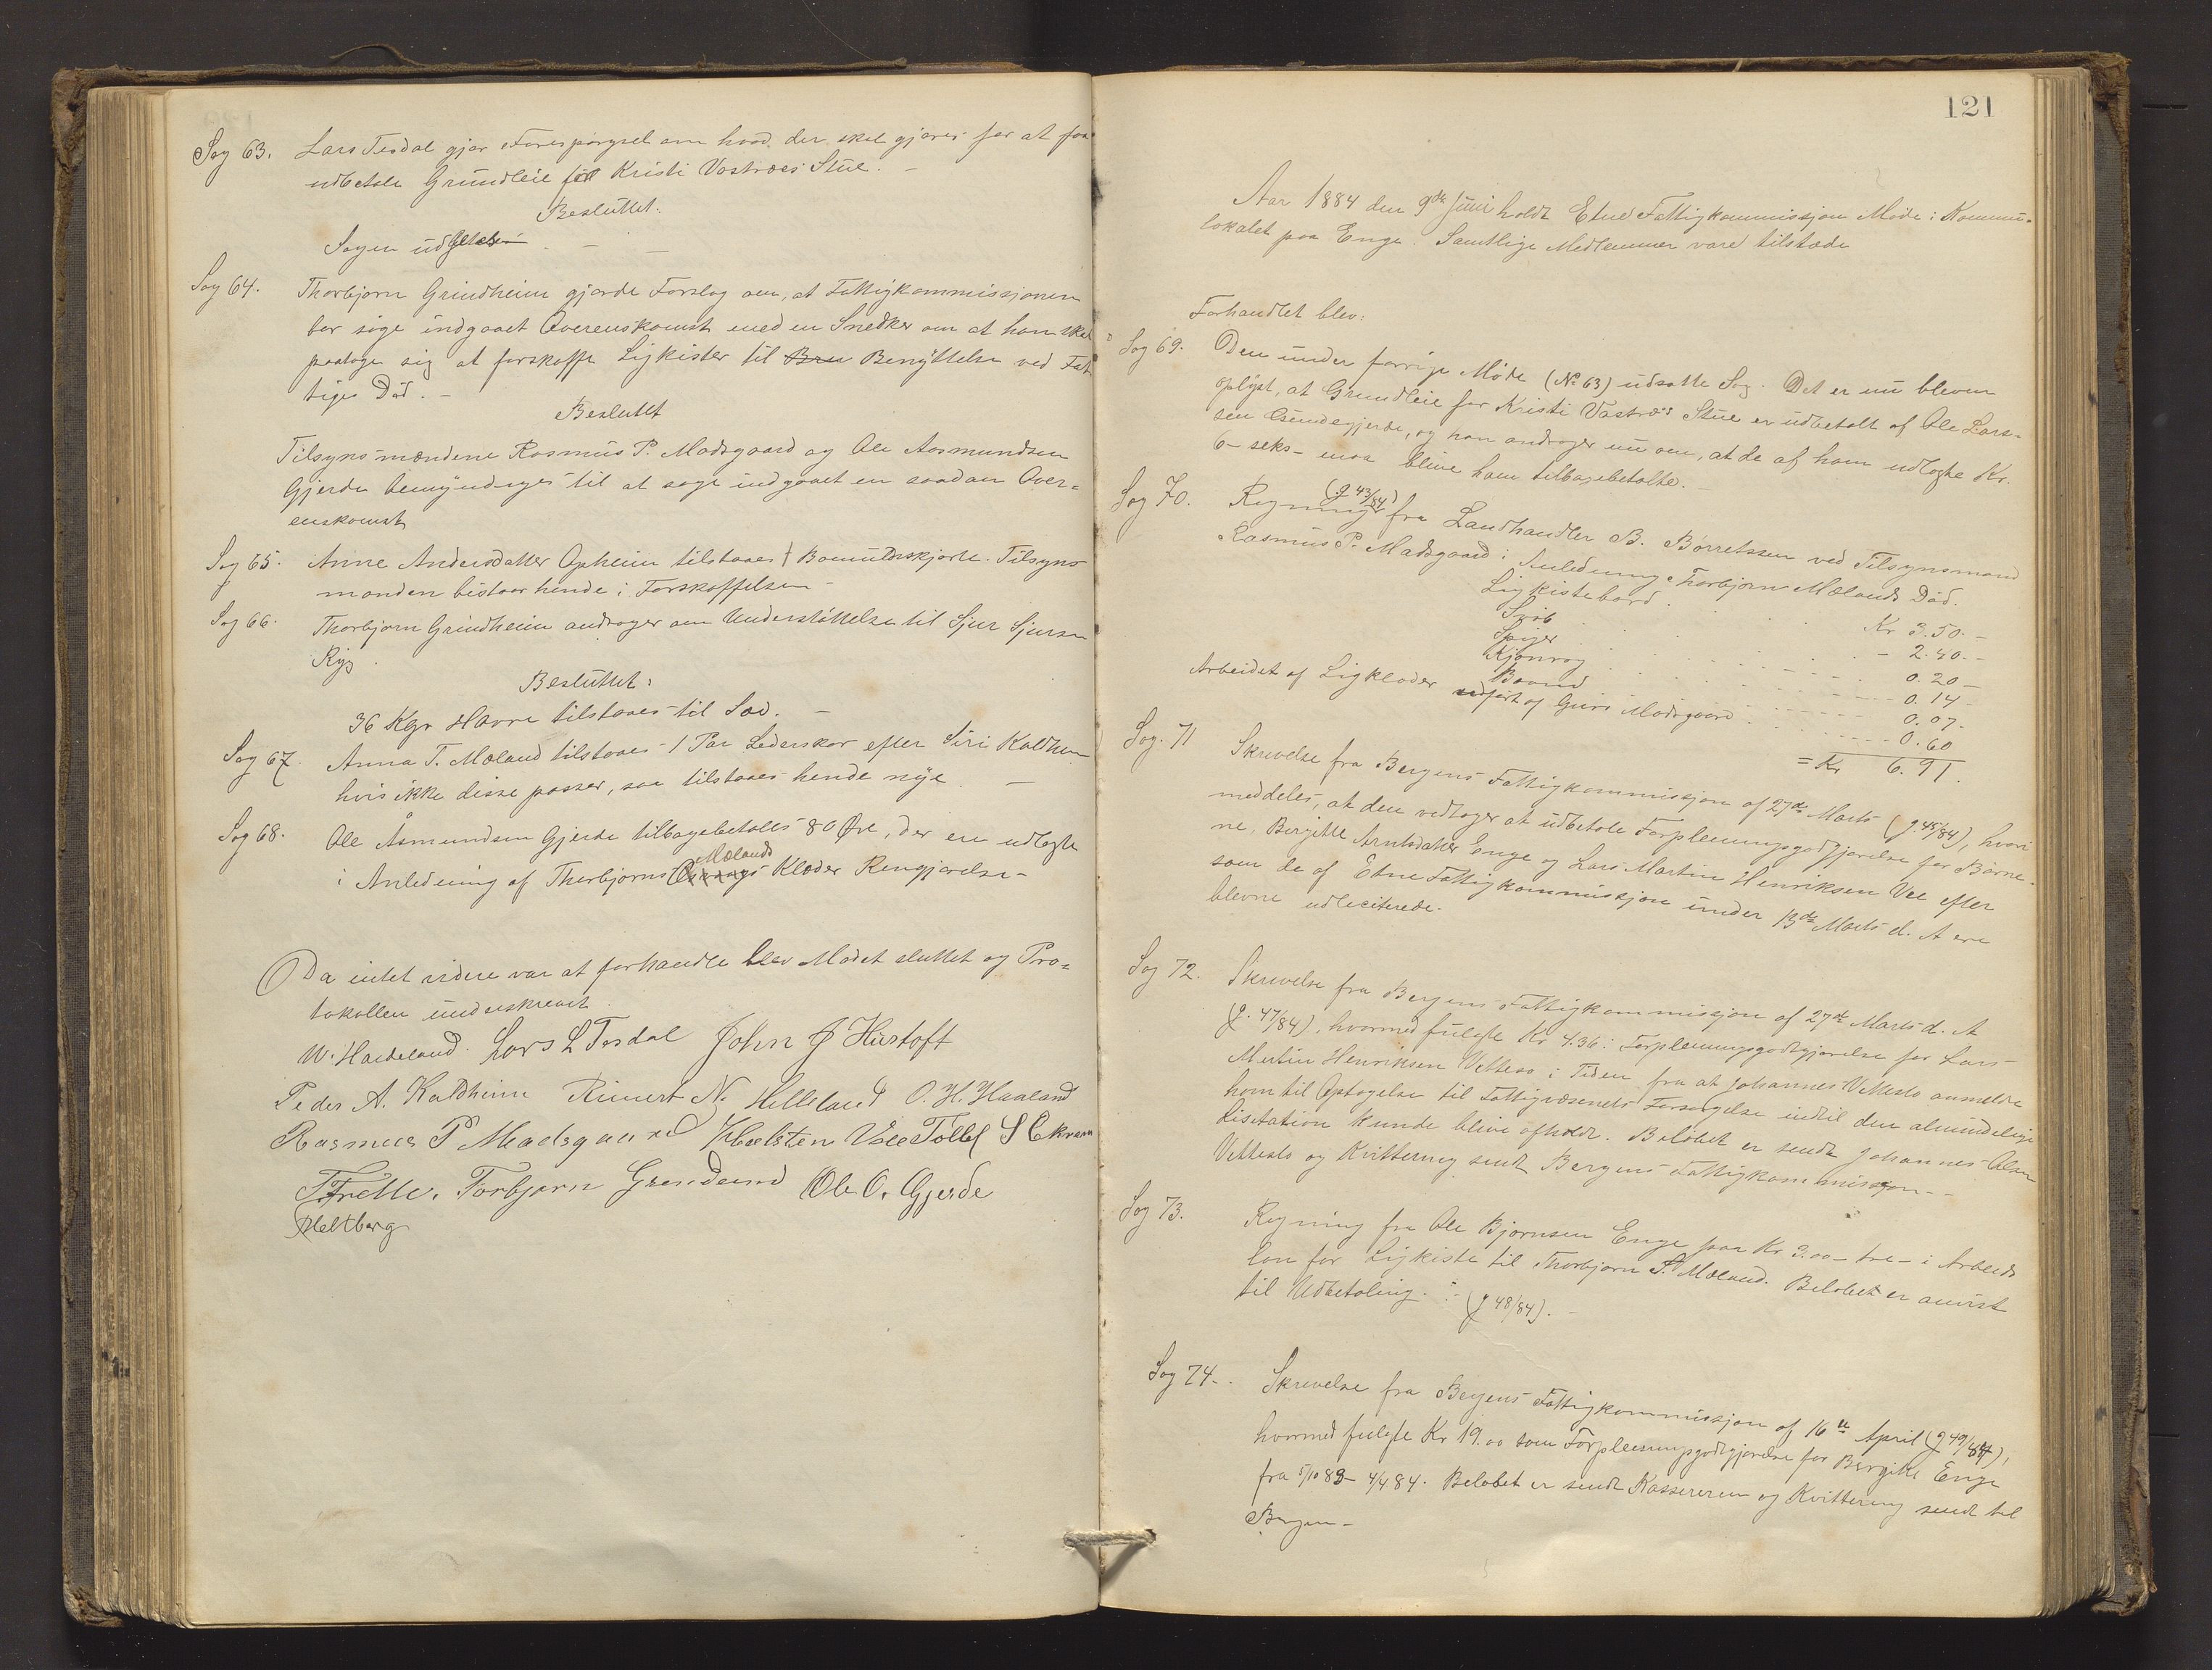 Sag 63. Lars Tesdal gjør Forespørgsel om hvad der skal gjøres for at faa
udbetale Grundleie for Kristi Vastræs Stue. –
Besluttet:
Sagen
Sag 64. Thorbjørn Grindheim gjorde Forslag om, at Fattigkommissjonen
bør søge indgaaet Overenskomst med en Snedker om at han skal
paatage sig at forskaffe Ligkister til Benyttelse ved Fat
tiges Død. –
Besluttet
Tilsynsmændene Rasmus P. Madsgaard og Ole Aasmundsen
Gjerde bemyndiges til at søge indgaaet en saadan Over=
enskomst
Sag 65. Anne Andersdatter Opheim tilstaaes 1 Bomuldsskjorte. Tilsyns
manden bistaar hende i Forskaffelsen
Sag 66. Thorbjørn Grindheim andrager om Understøttelse til Sjur Sjursen
Ryg.
Besluttet:
36 Kgr Havre tilstaaes til Sæd. –
Sag 67. Anna T. Mæland tilstaaes 1 Par Lædersko efter Siri Kaldheim
hvis ikke disse passer, saa tilstaaes hende nye. –
Sag 68. Ole Åsmundsen Gjerde tilbagebetales 80 Øre, der er udlagte
Mælands
i Anledning af Thorbjørns Klæder Rengjørelse –
Da intet videre var at forhandle blev Mødet sluttet og Pro=
tokollen underskrevet.
W. Hardeland. Lars L Tesdal John J Hustoft
Peder A. Kaldheim Rimert N. Helleland O. H. Haaland
Rasmus P Madsgaard Halsten Vee Tollef S Ekrem
T Frette. Torbjørn Grendeim Ole O. Gjerde
Heltberg
121
Aar 1884 den 9de Juni holdt Etne Fattigkommissjon Møde i Kommu=
lokalet paa Enge. Samtlige Medlemmer vare tilstæde
Forhandlet blev:
Sag 69. Den under forrige Møde (No 63) udsatte Sag. Det er nu bleven
oplyst, at Grundleie for Kristi Vastræs Stue er udbetalt af Ole Lars=
sen Osundegjerde, og han andrager nu om, at de af ham udlagte Kr.
6 – seks – maa blive ham tilbagebetalte. –
(J 43/84)
Sag 70. Regning fra Landhandler B. Børretssen ved Tilsynsmand
Rasmus P. Madsgaard i Anledning Thorbjørn Mælands Død.
Ligkistebord . . . Kr 3.50. –
Svøb . . . – 2.40. –
Spiger . . . 0.20 –
Kjønrøg . . . 0.14 –
Baand . . . 0.07.
Arbeidet af Ligklæder udført af Guri Madsgaard . . . 0.60
= Kr 6.91.
Sag. 71 Skrivelse fra Bergens Fattigkommissjon af 27de Marts (J. 45/84), hvori
meddeles, at den vedtager at udbetale Forpleiningsgodtgjørelse for Børne=
ne, Bergitte Arntsdatter Enge og Lars Martin Henriksen Vee efter
som de af Etne Fattigkommissjon under 13de Marts d. A ere
blevne udliciterede.
Sag 72. Skrivelse fra Bergens Fattigkommissjon af 27de Marts d. A
(J. 47/84), hvormed fulgte Kr 4.36 i Forpleiningsgodtgjørelse for Lars
Martin Henriksen Vetteso i Tiden fra at Johannes Vettesto anmeldte
ham til Optagelse til Fattigvæsenets Forsørgelse indtil den almindelige
Lisitation kunde blive afholdt. Beløbet er sendt Johannes Olsen
Vettesto og Kvittering sendt Bergens Fattigkommissjon. –
Sag 73. Regning fra Ole Bjørnsen Enge paa Kr 3.00 – tre – i Arbeids
løn for Ligkiste til Thorbjørn S. Mæland. Beløbet er anvist
til Udbetaling. – (J 48/84). –
Sag 74. Skrivelse fra Bergens Fattigkommissjon af 16de April (J 49/84),
hvormed fulgte Kr 19.00 som Forpleiningsgodtgjørelse for Bergitte Enge
fra 5/10 83 – 4/4 84. Beløbet er sendt Kassereren og Kvittering sendt til
Bergen –